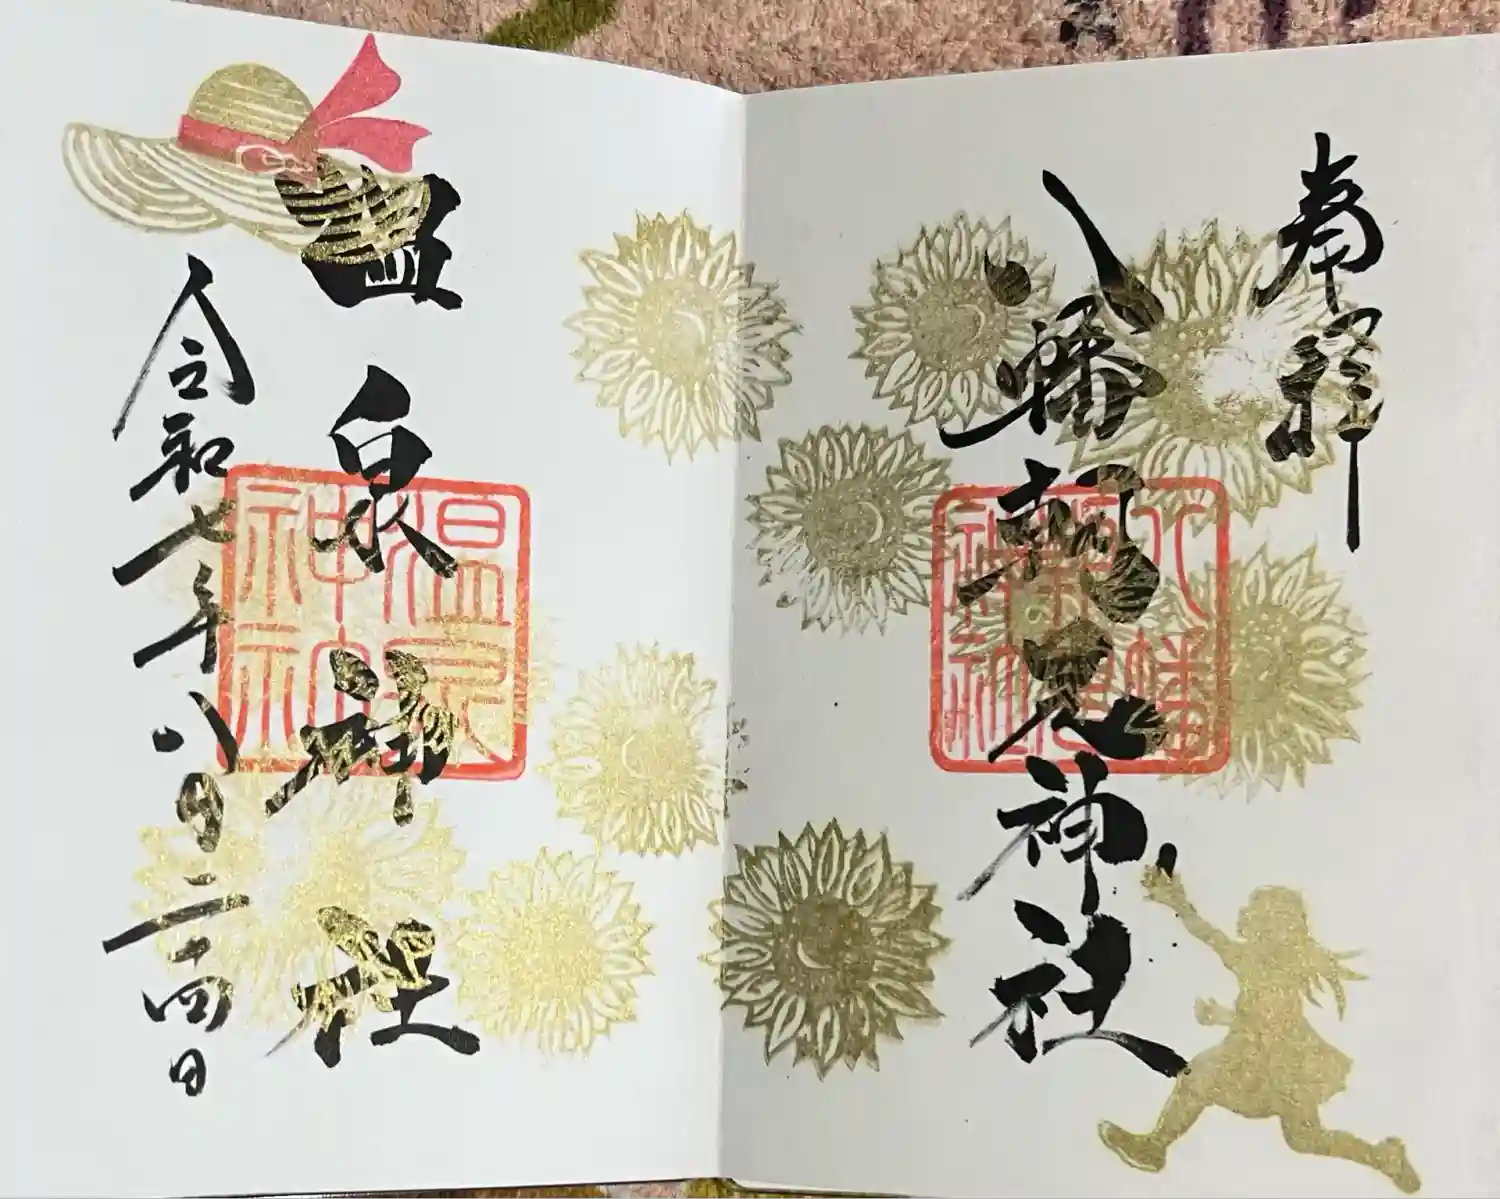 奉拝
八幡朝見神社
八幡朝見神社
温泉神社
温泉神社
令和七年八月二十四日